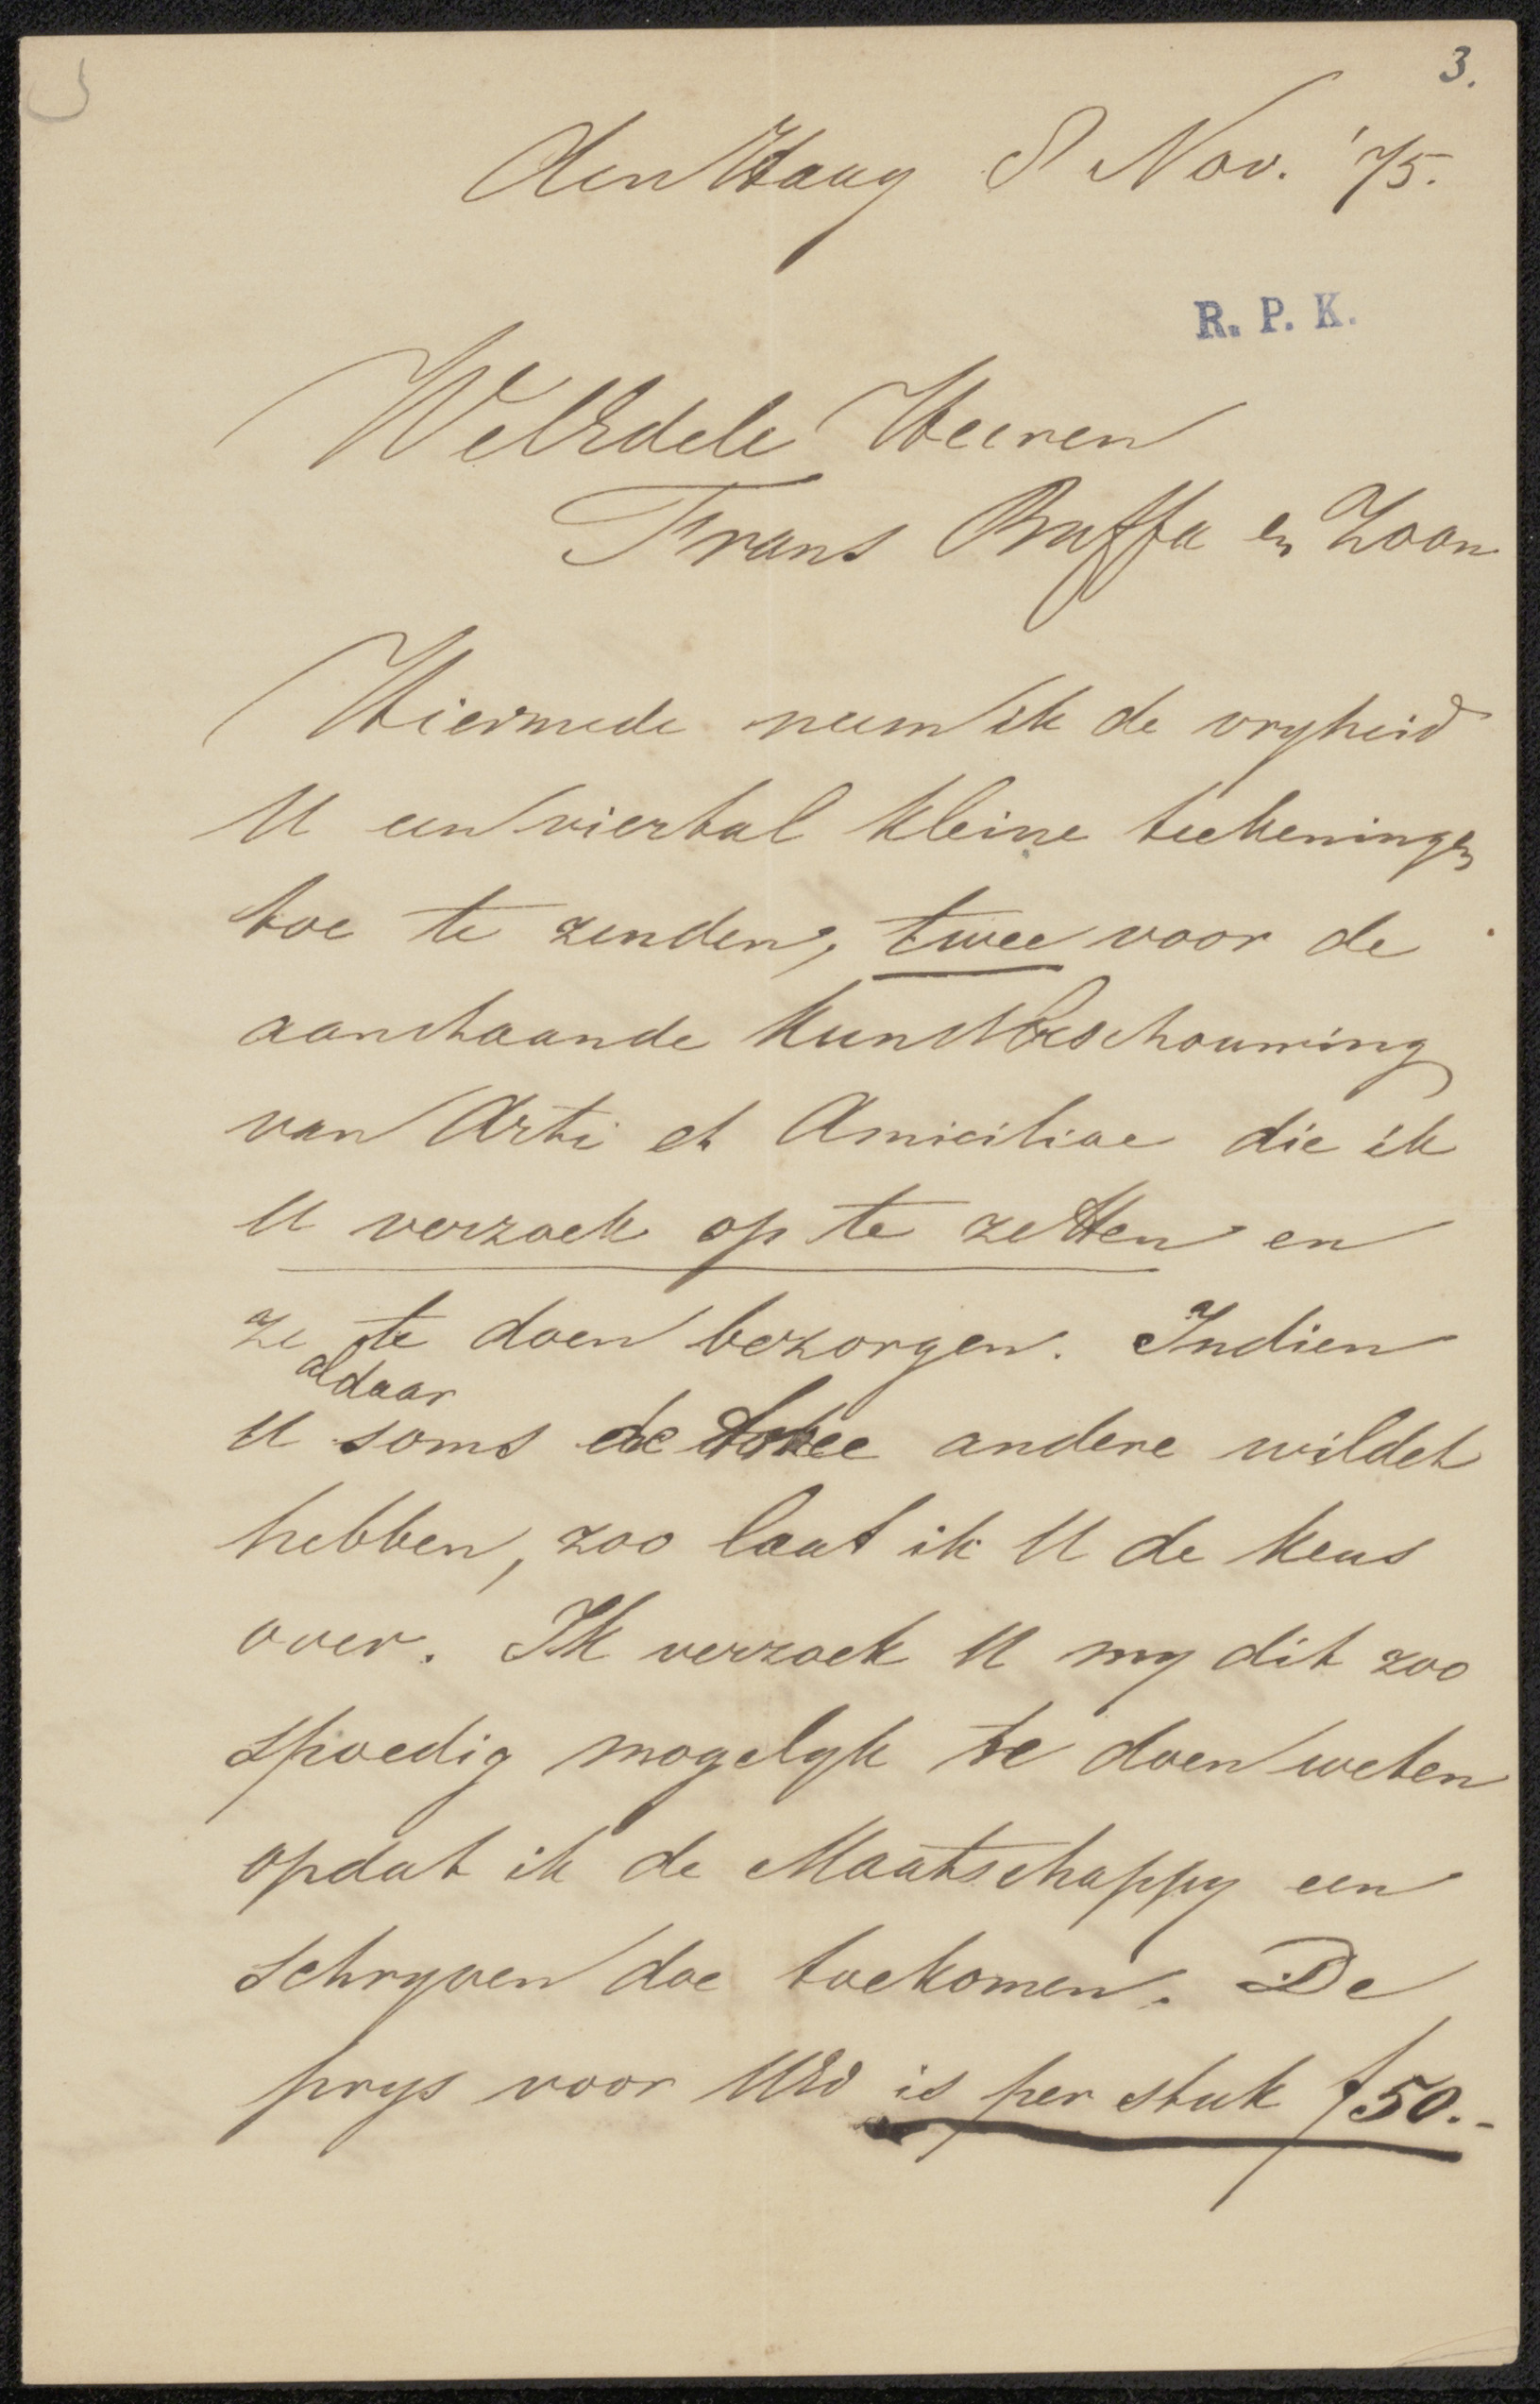 3.
den Haag 8 Nov. '75.
R. P. K.
WelEdele Heeren
Frans Buffa en Zoon
Hiermede neem ik de vryheid
U een viertal kleine teekeningen
toe te zenden, twee voor de
aanstaande kunstbeschouwing
van Arti et Amicitiae die ik
U verzoek op te zetten en
ze te doen bezorgen. Indien
aldaar
U soms de twee andere wildet
hebben, zoo laat ik U de keus
over. Ik verzoek U my dit zoo
spoedig mogelyk te doen weten
opdat ik de Maatschappy een
schryven doe toekomen. De
prys voor UEd is per stuk f 50.-